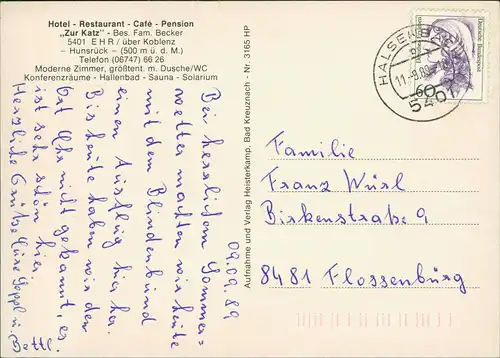 Hotel - Restaurant - Café - Pension
"Zur Katz" - Bes. Fam. Becker
5401 EHR / über Koblenz
– Hunsrück – (500 m ü. d. M.)
Telefon (06747) 66 26
Moderne Zimmer, größtent. m. Dusche/WC
Konferenzräume - Hallenbad - Sauna - Solarium
09.09.89
Bei herrlichem Sommer=
wetter machten wir heute
mit dem Blindenbund
einen Ausflug hierher.
Bis heute haben wir den
Ort Ehr nicht gekannt, es
ist sehr schön hier.
Herzliche Grüße Eure Seppl u.
Bettl.
Aufnahme und Verlag Heisterkamp, Bad Kreuznach - Nr. 3165 HP
HALSENBACH
11.-9.89
5401
60
Deutsche Bundespost
Familie
Franz Würl
Birkenstraße 9
8481 Flossenbürg